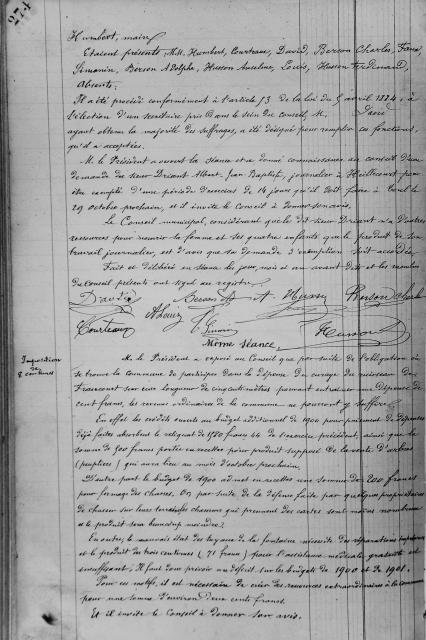 274
Humbert, maire
Etaient présents, MM. Humbert, Courteaux, David, Berson Charles,
Simonin, Berson Adolphe, Husson Anselme, Louis, Husson Ferdinand,
Absents:
Il a été procédé conformément à l'article 53 de la loi du 5 avril 1884, à
l'élection d'un secrétaire pris dans le sein du conseil, M. David
ayant obtenu la majorité des suffrages, a été désigné pour remplir ces fonctions,
qu'il a acceptées.
M. le Président a ouvert la séance et a donné connaissance au conseil d'une
demande du sieur Driant Albert Jean Baptiste, journalier à Haillecourt pour
être exempté d'une période d'exercices de 14 jours qu'il doit faire à
29 octobre prochain, et il invite le Conseil à donner son avis.
Le Conseil municipal, considérant que le dit sieur Driant n'a d'autres
ressources pour nourrir sa femme et ses quatre enfants que le produit de son
travail journalier, est d'avis que sa demande d'exemption soit accordée.
Fait et délibéré en séance les jour, mois et an avant dits et les membres
du Conseil présents ont signé au registre.
David Berson A. Husson Berson
A Louis
Courteaux Simonin Husson
Même Séance,
Imposition
de
8 centimes
M. le Président a exposé au Conseil que par suite de l'obligation où
se trouve la commune de participer dans la dépense du curage du ruisseau de
sur une longueur de cinquante mètres pouvant entraîner une dépense de
cent francs, les revenus ordinaires de la commune ne pourront y suffire.
En effet les crédits ouverts au budget additionnel de 1900 pour paiement de dépenses
déjà faites absorbent le reliquat de francs 44 de l'exercice précédent, ainsi que la
somme de 500 francs portée en recettes pour produit supposé de la vente d'arbres
(peupliers) qui aura lieu au mois d'octobre prochain.
D'autre part le budget de 1900 admet en recettes une somme de 200 francs
pour fermage des chasses. Or par suite de la défense faite par quelques propriétaires
de chasser sur leurs terrains les chasseurs qui prennent des cartes sont moins nombreux
et le produit sera beaucoup moindre.
En outre, le mauvais état des tuyaux de la fontaine nécessite des réparations
et le produit des trois centimes (71 francs) pour l'assistance médicale gratuite est
insuffisant. Il faut donc prévoir un déficit sur les budgets de 1900 et de 1901.
Pour ces motifs, il est nécessaire de créer des ressources extraordinaires à la commune
pour une somme d'environ deux cents francs.
Et il invite le Conseil à donner son avis.